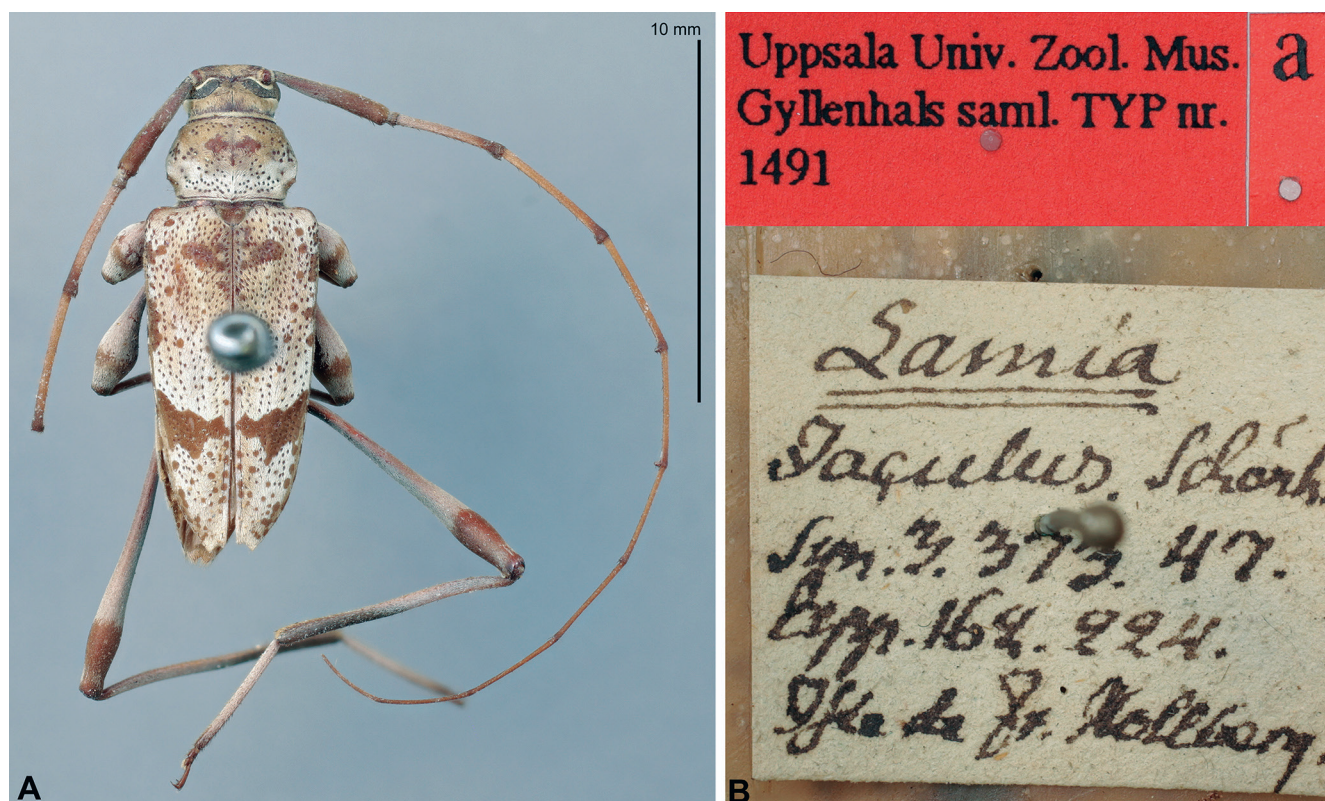 10 mm
A
Uppsala Univ. Zool. Mus.
Gyllenhals saml. TYP nr.
1491
a
Lamia
Jaculus. Schönh.
Syn. 3. 373. 47.
App. 168. 224.
de Fr.
B